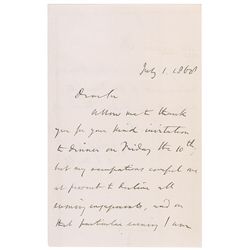 July 1. 1868
Dear Sir
Allow me to thank
you for your kind invitation
to dinner on Friday the 10th,
but my occupations compel me
at present to decline all
evening engagements, and on
that particular evening I am